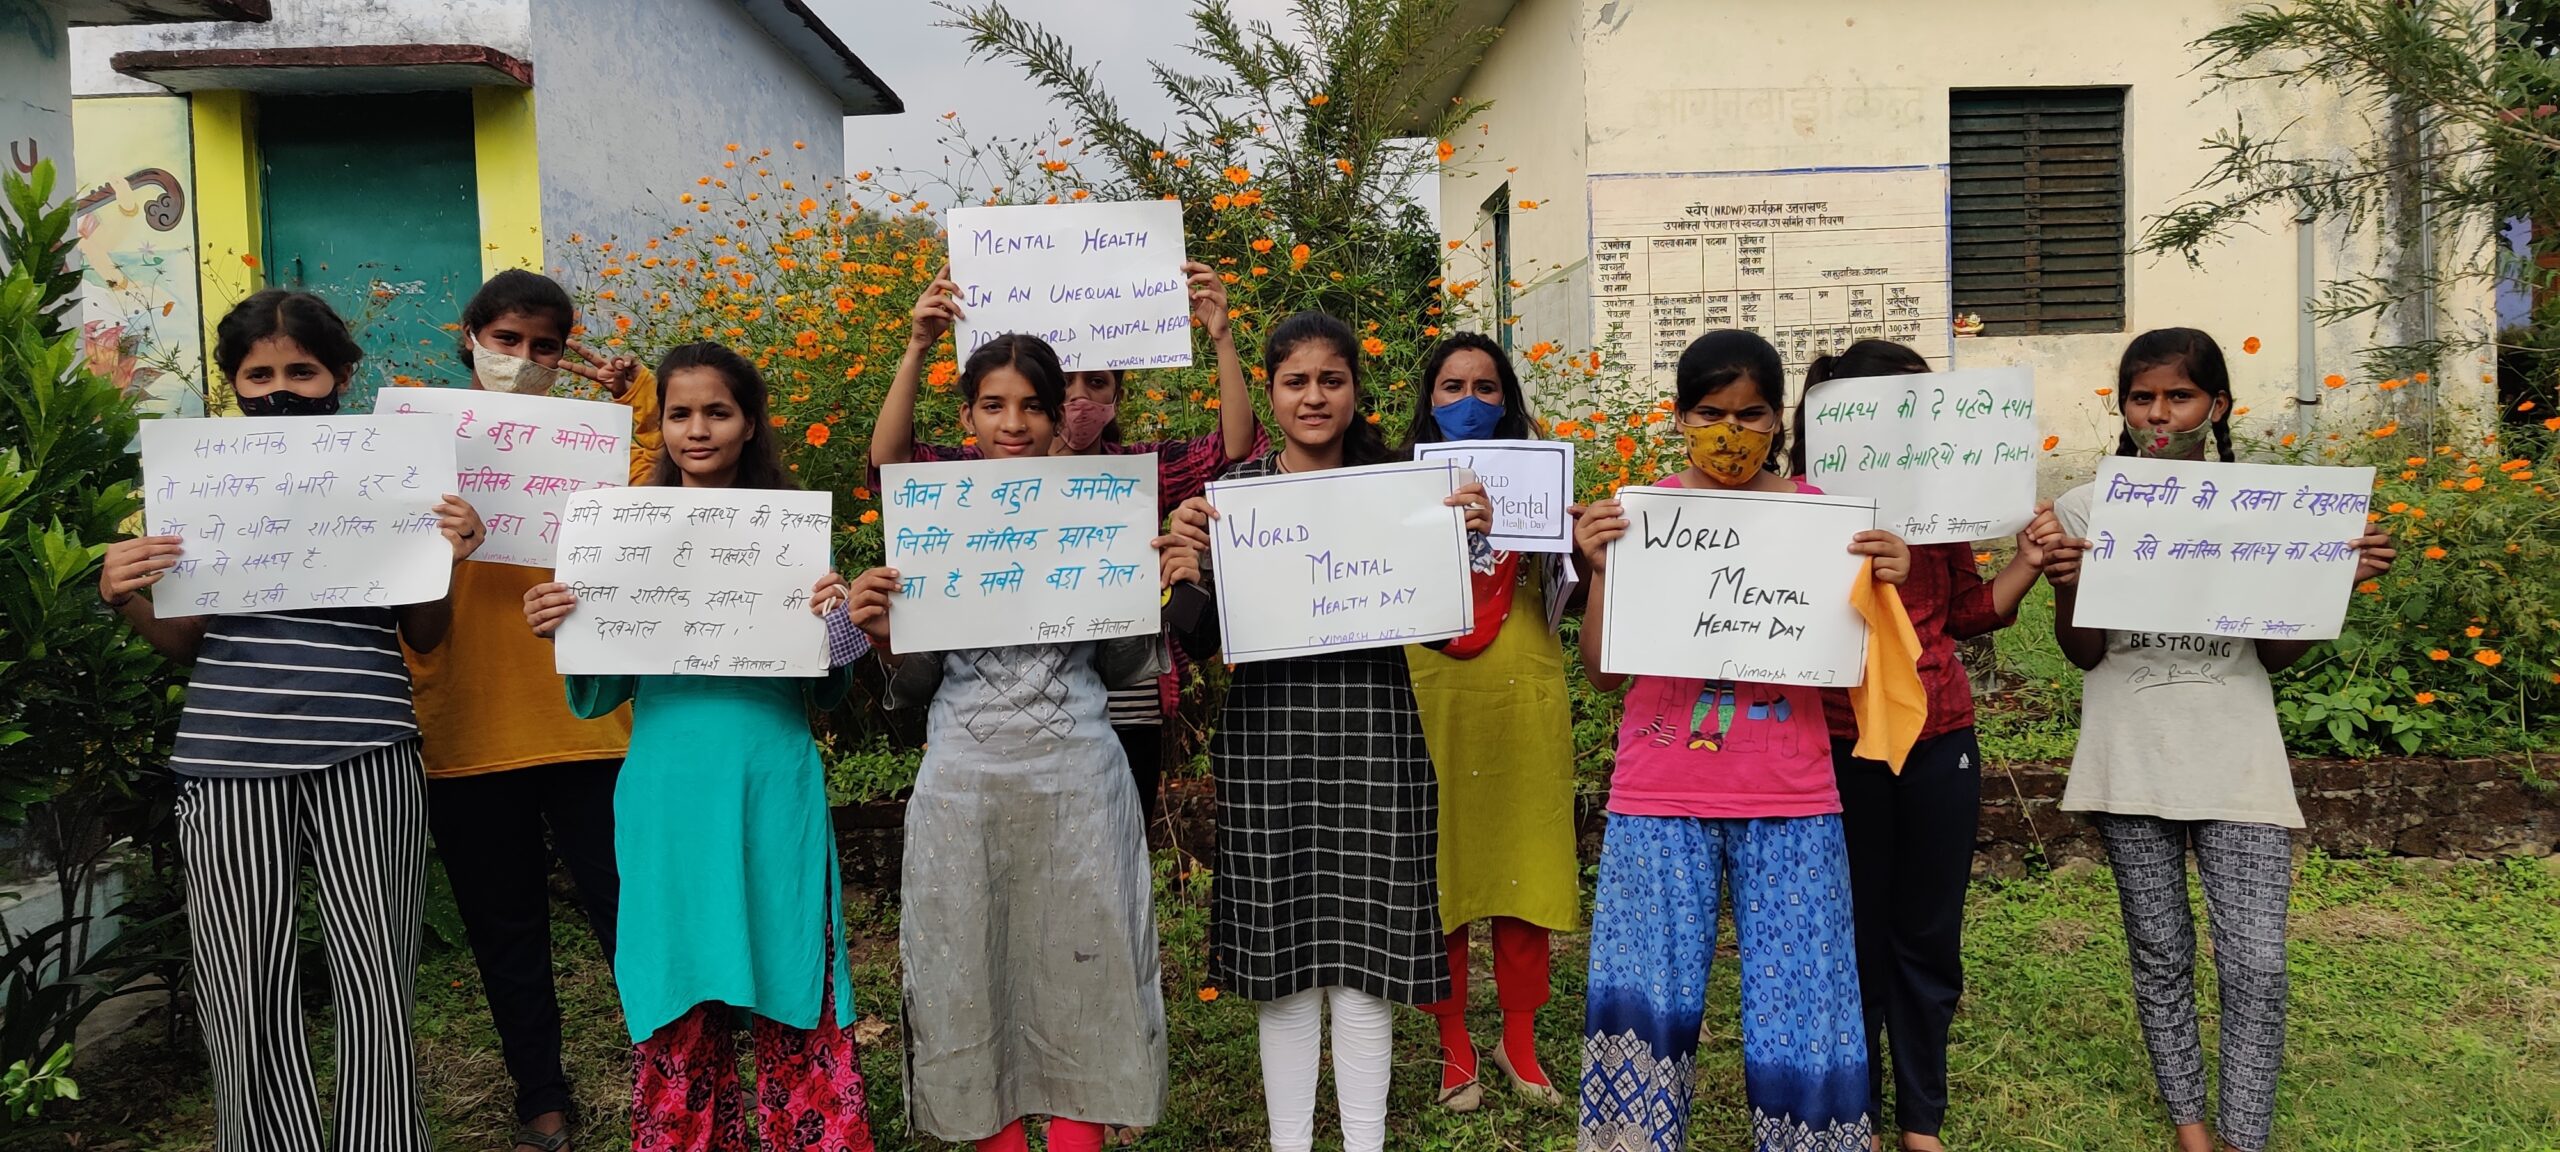 सकरात्मक सोच है
तो मॉनसिक बीमारी दूर है
और जो व्यक्ति शारीरिक मॉनसि
रूप से स्वस्थ्य है.
वह सुखी जरूर है.
है बहुत अनमोल
मॉनसिक स्वास्थ्य
बडा रो
VIMARSH NTL"
अपने मॉनसिक स्वास्थ्य की देखभाल
करना उतना ही महत्वपूर्ण है.
जितना शारीरिक स्वास्थ्य की
देखभाल करना."
[विमर्श नैनीताल]
"MENTAL HEALTH
IN AN UNEQUAL WORLD
WORLD MENTAL HEALTH
DAY VIMARSH NAINITAL
जीवन है बहुत अनमोल
जिसमें मॉनसिक स्वास्थ्य
का है सबसे बडा रोल.
"विमर्श नैनीताल"
WORLD
MENTAL
HEALTH DAY
[VIMARSH NTL]
WORLD
Mental
Health Day
WORLD
MENTAL
HEALTH DAY
[VIMARSH NTL]
स्वास्थ्य को दे पहले स्थान
तभी होगा बीमारियों का निदान.
"विमर्श नैनीताल"
जिन्दगी को रखना है खुशहाल
तो रखे मॉनसिक स्वास्थ्य का ख्याल
"विमर्श नैनीताल"
BE STRONG
आंगनबाड़ी केन्द्र
स्वैप (NRDWP) कार्यक्रम उत्तराखण्ड
उपभोक्ता पेयजल एवं स्वच्छता उप समिति का विवरण
उपभोक्ता पेयजल एवं स्वच्छता उप समिति का नाम
सदस्य का नाम
पदनाम
सामुदायिक अंशदान
नगद
श्रम